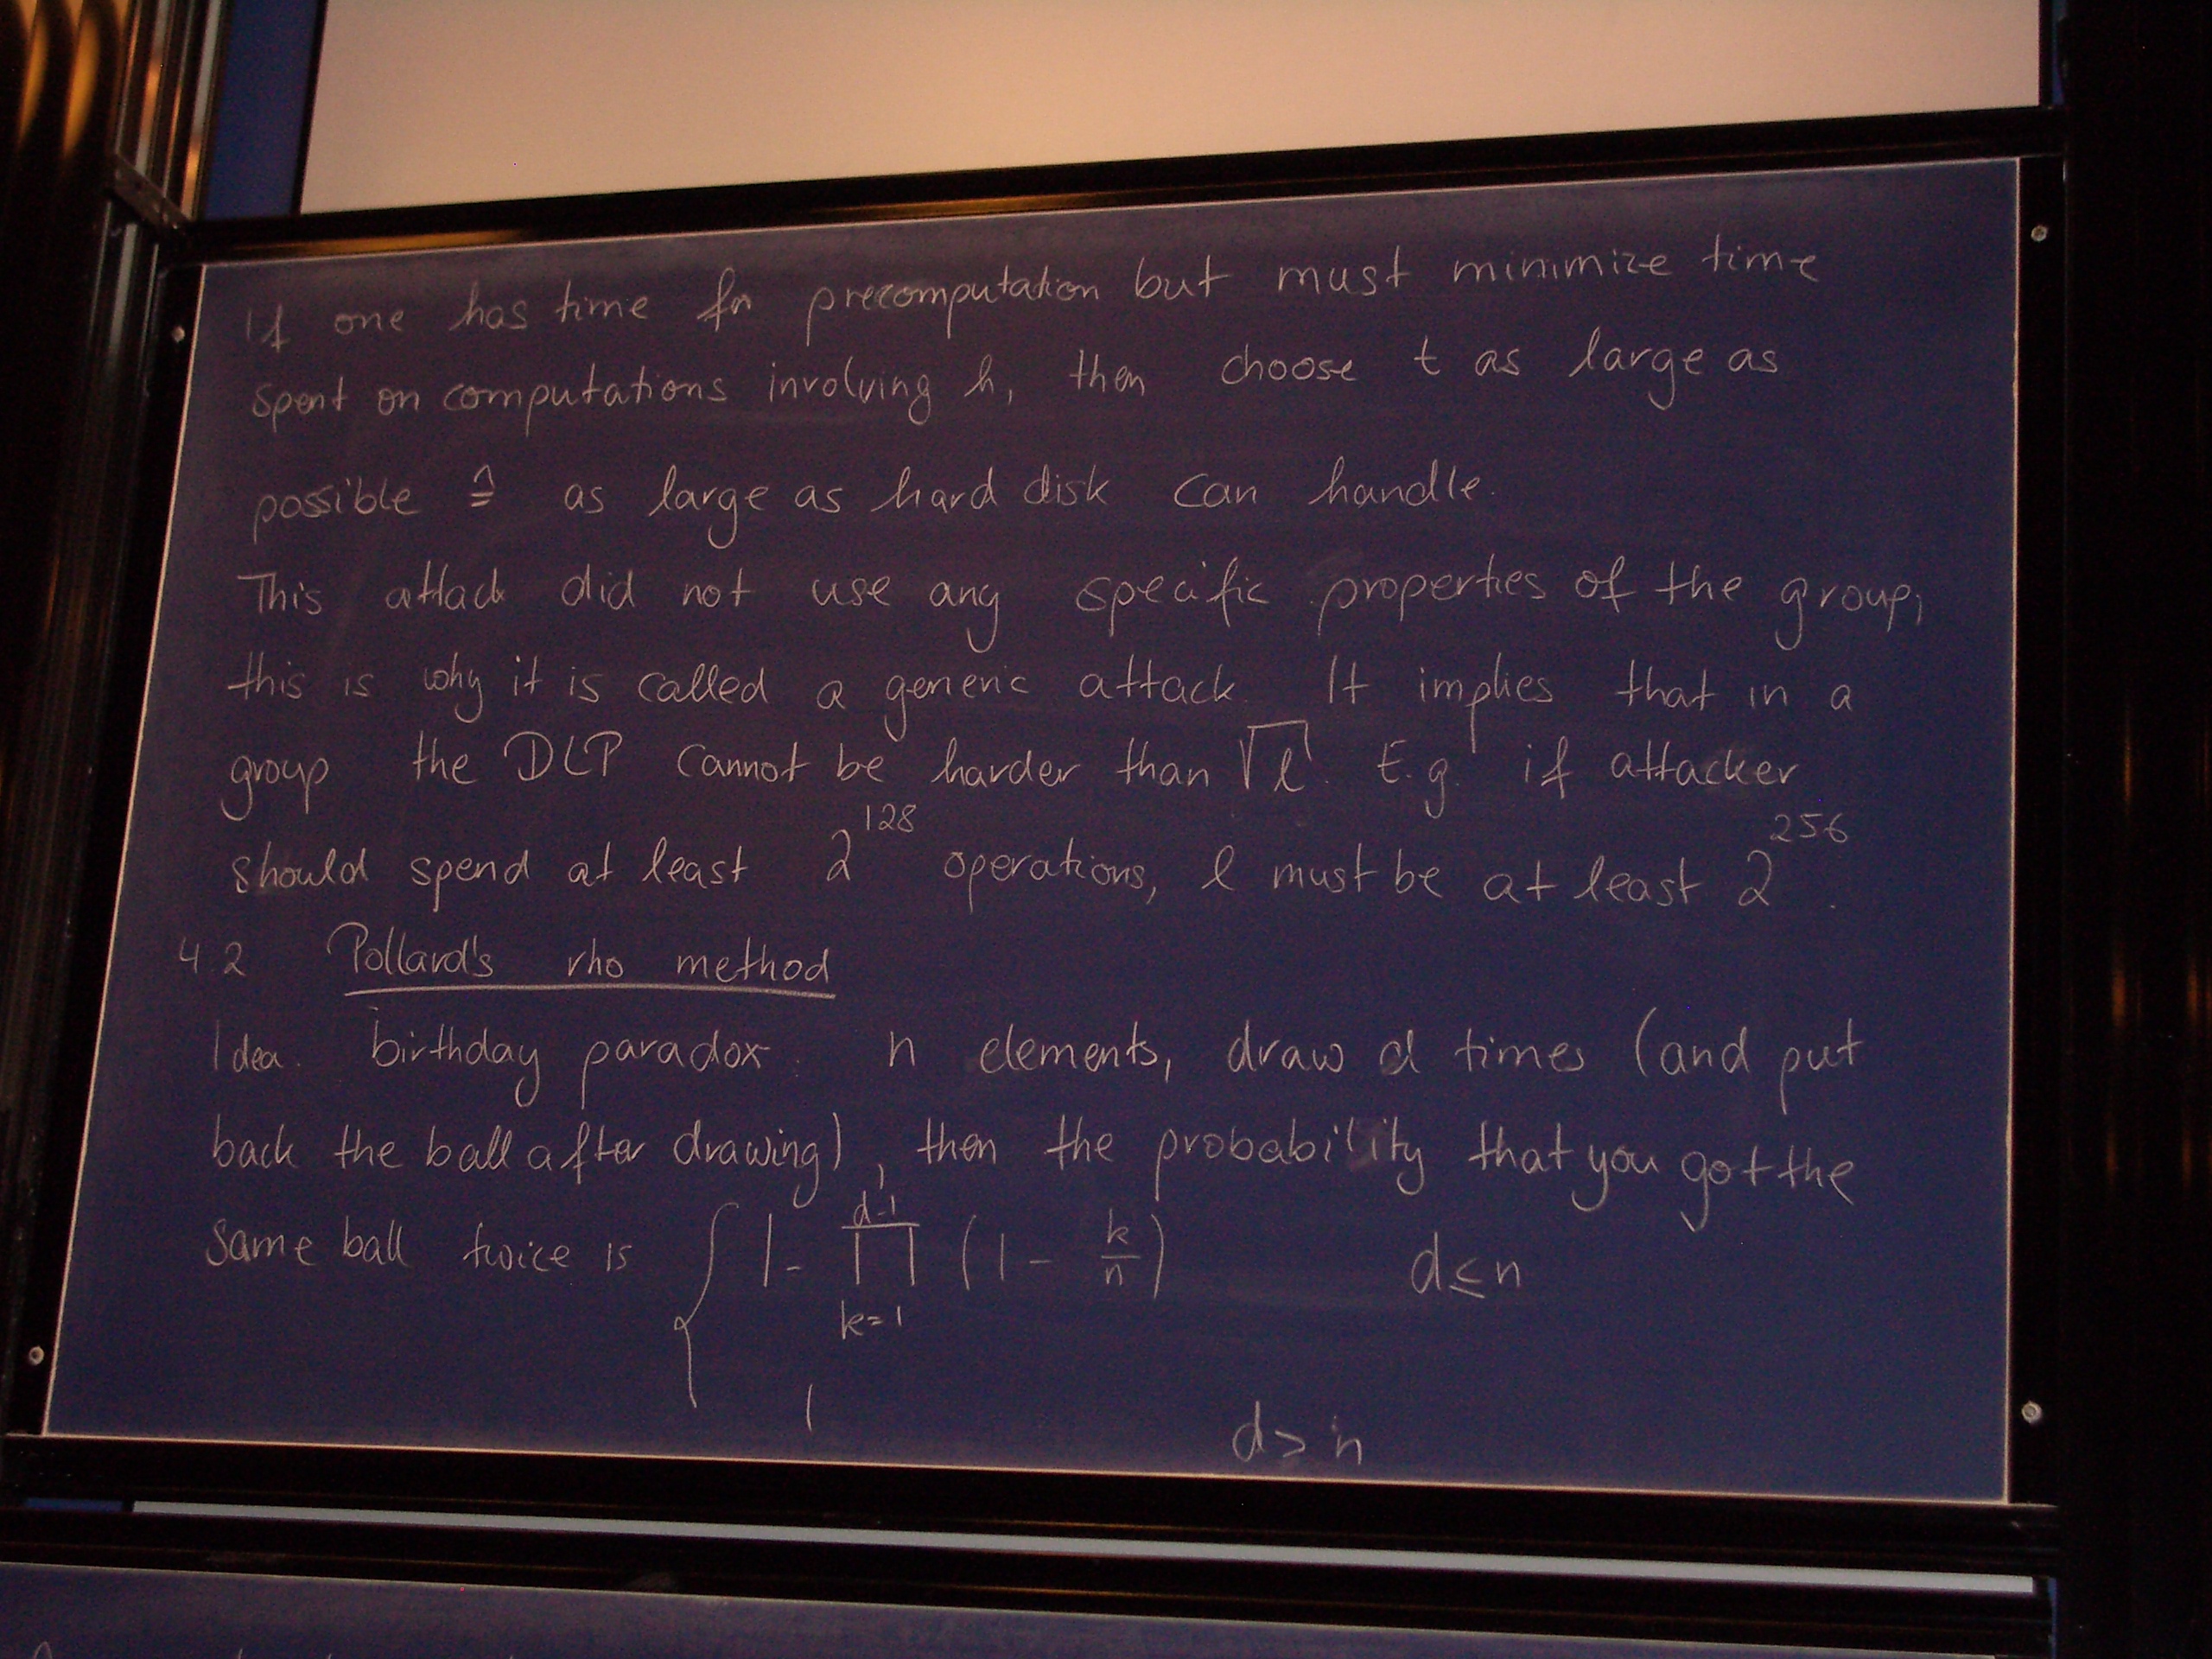 If one has time for precomputation but must minimize time
spent on computations involving h, then choose t as large as
possible ≙ as large as hard disk can handle.
This attack did not use any specific properties of the group,
this is why it is called a generic attack. It implies that in a
group the DLP cannot be harder than √l. E.g. if attacker
should spend at least 2^128 operations, l must be at least 2^256.
4.2 Pollard's rho method
Idea: birthday paradox: n elements, draw d times (and put
back the ball after drawing), then the probability that you got the
same ball twice is { 1 - ∏_{k=1}^{d-1} (1 - k/n) d ≤ n
1 d > n